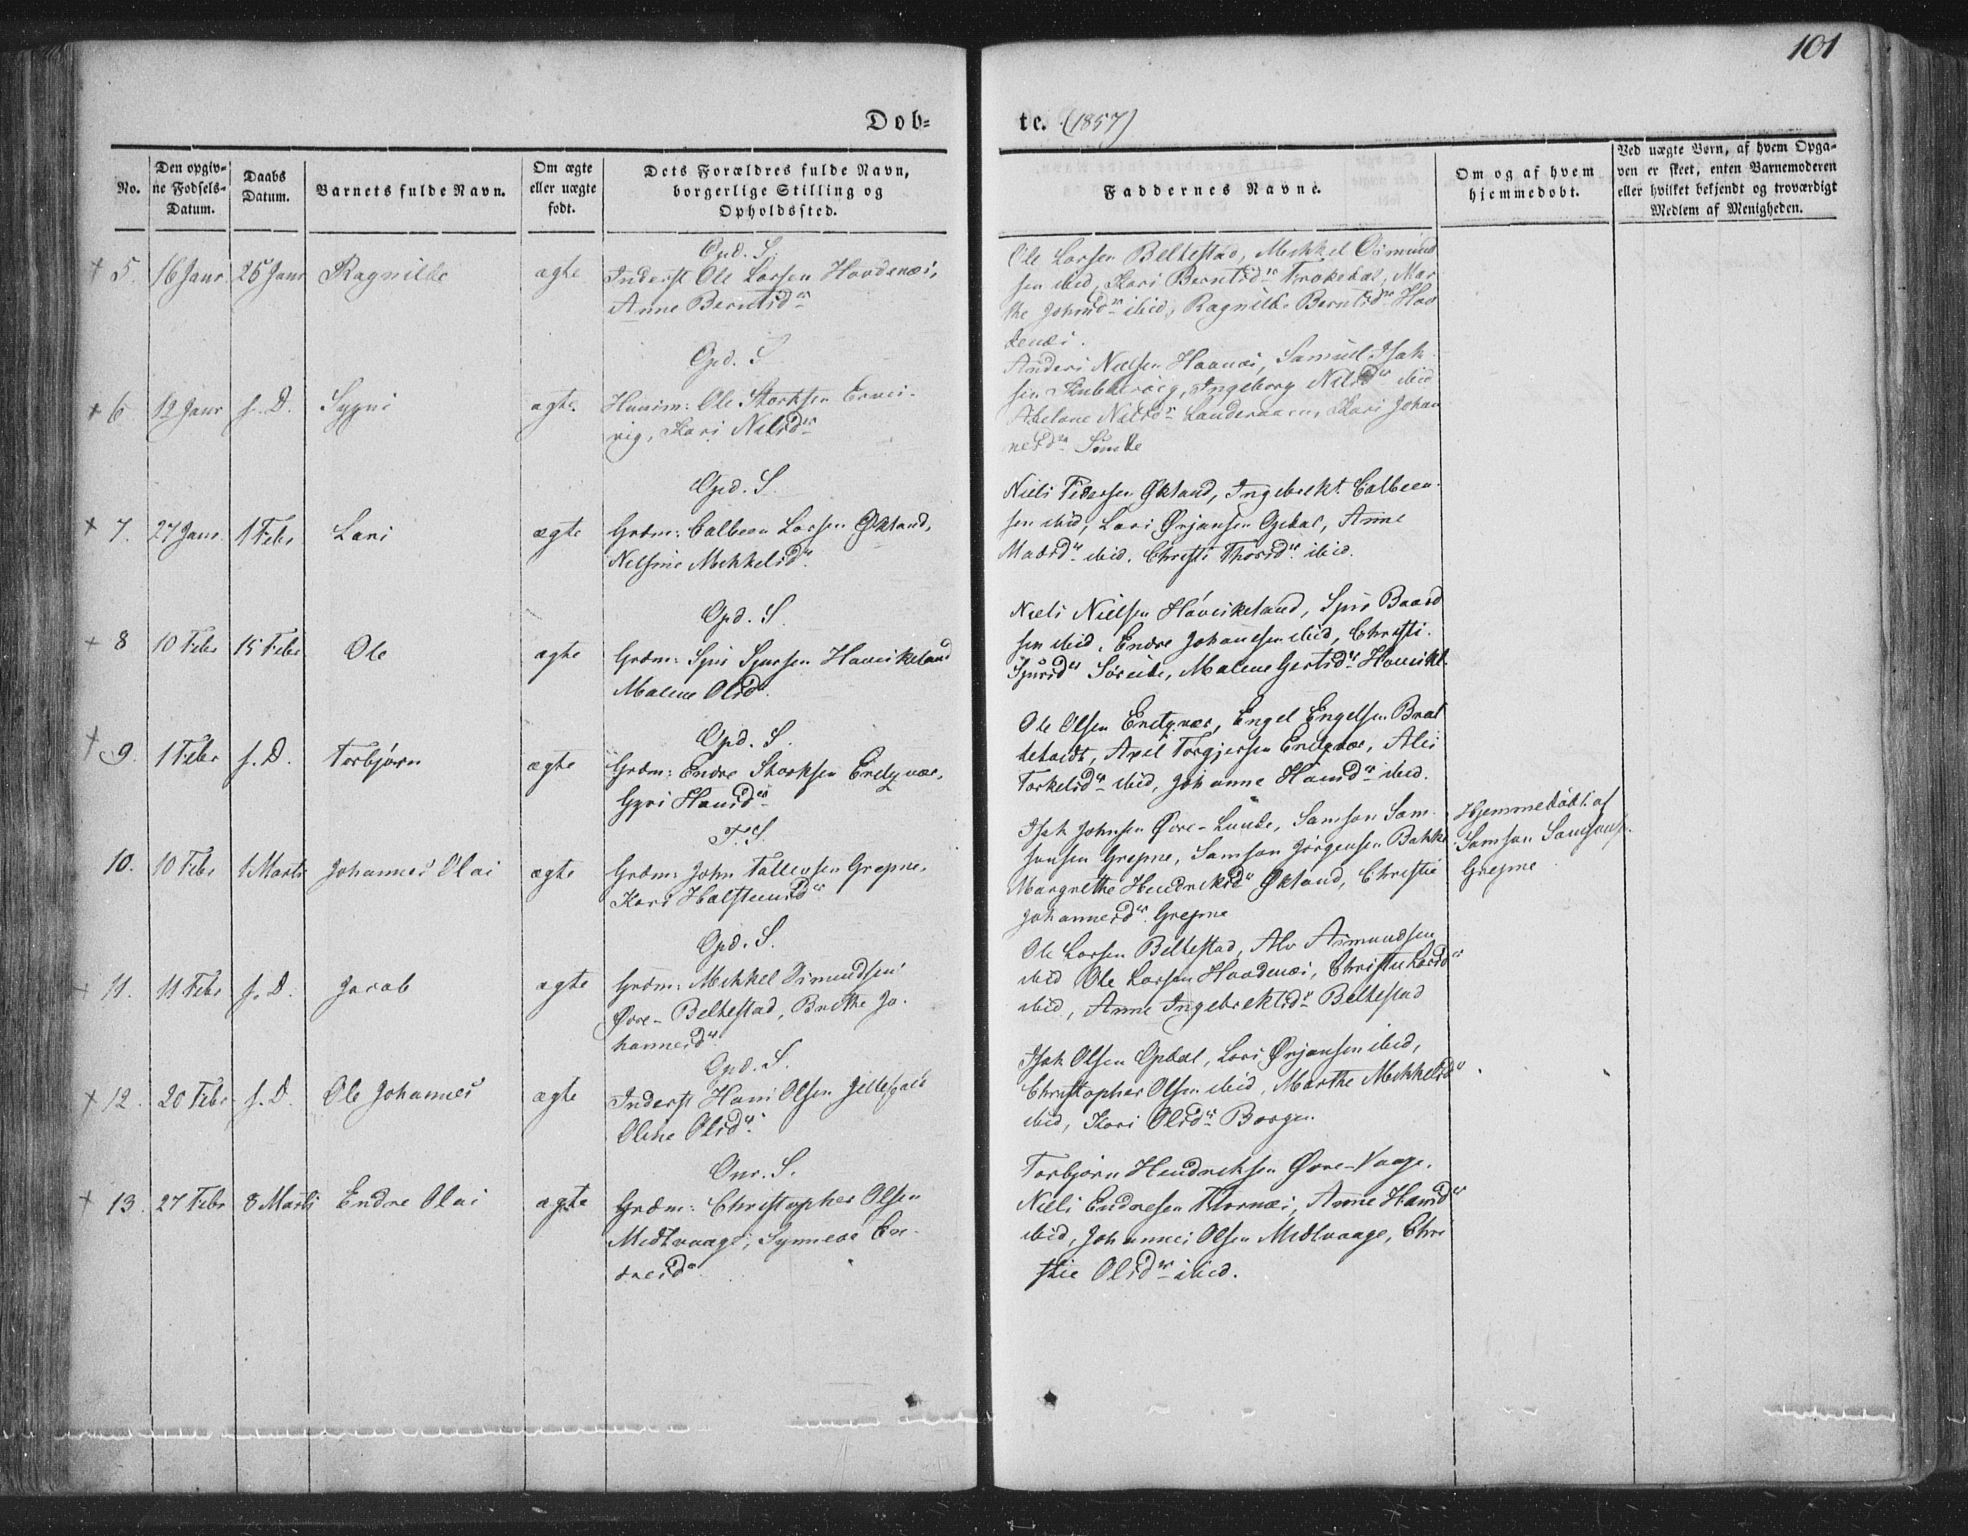 101
Døb-
te. (1857)
No.
Den opgiv-
ne Fødsels-
Datum.
Daabs
Datum.
Barnets fulde Navn.
Om ægte
eller uægte
født.
Dets Forældres fulde Navn,
borgerlige Stilling og
Opholdssted.
Faddernes Navne.
Om og af hvem
hjemmedøbt.
Ved uægte Børn, af hvem Opga-
ven er skeet, enten Barnemoderen
eller hvilket bekjendt og troværdigt
Medlem af Menigheden.
Opd. S.
+ 5. 16 Janr 25 Janr Ragnilde ægte Inderst Ole Larsen Haadenæs,
Anne Berntsdr
Ole Larsen Beltestad, Mekkel Osmund
sen ibid, Kari Berntsdr Trokedal, Mar
the Johnsdr ibid, Ragnilde Berntsdr Haa
denæs.
Opd. S
+ 6. 12 Janr s. D. Sygni ægte Huusm: Ole Storksen
vig, Kari Nilsdr
Anders Nielsen Haanæs, Samuel Isak
sen Ingeborg Nilsdr ibid
Abelone Nilsdr Kari Johan
nesdr
Opd. S.
+ 7. 27 Janr 1 Febr Lars ægte Grdm: Colbeen Larsen Økland,
Nilsine Mekkelsdr
Niels Pedersen Økland, Ingebrekt Colbeen-
sen ibid, Lars Ørjansen Opdal, Anne
Madsdr ibid, Christi Thorsdr ibid.
Opd. S.
+ 8 10 Febr 15 Febr Ole ægte Grdm: Sjur Sjursen Haviskeland
Malene Olsdr
Niels Nielsen Haviskeland, Sjur Baard
sen ibid, Endre Johannesen ibid, Christi
Sjursdr Søreide, Malene Gertsdr
Opd. S.
+ 9. 1 Febr s. D. Torbjørn ægte Grdm: Endre Storksen Eneqvær,
Gyri Hansdr
Ole Olsen Eneqvær, Engel Engelsen Brat
Axel Torgjersen Eneqvær, Ales
Torkelsdr ibid, Johanne Hansdr ibid.
T. S.
10. 10 Febr 1 Marts Johannes Olai ægte Grdm: John Tollevsen Grepne,
Kari Halsteensdr
Isak Johnsen Øvre-Lunde, Samson Sam-
sonsen Grepne, Samson Jørgensen Bakke
Margrethe Hendriksdr Økland, Christie
Johannesdr Grepne
Hjemmedøbt af
Samson Samsons.
Grepne
Opd. S.
+ 11. 11 Febr s. D. Jacob ægte Grdm: Mekkel Osmundsen
Øvre-Beltestad, Brithe Jo-
hannesdr
Ole Larsen Beltestad, Alv Asmundsen
ibid Ole Larsen Haadenæs, Christie Larsdr
ibid, Anne Ingebrektsdr Beltestad
Opd. S.
+ 12. 20 Febr s. D. Ole Johannes ægte Inderst Hans Olsen
Oline Olsdr
Isak Olsen Opdal, Lars Ørjansen ibid,
Christopher Olsen ibid, Marthe Mekkelsdr
ibid, Kari Olsdr Borgen
Onr. S.
+ 13. 27 Febr 8 Marts Endre Olai ægte Grdm: Christopher Olsen
Midtvaage, Synneve En-
dresdr
Torbjørn Hendriksen Øvre-Vaage,
Niels Endresen Thornæs, Anne Hansdr
ibid, Johannes Olsen Midtvaage, Chri
stie Olsdr ibid.